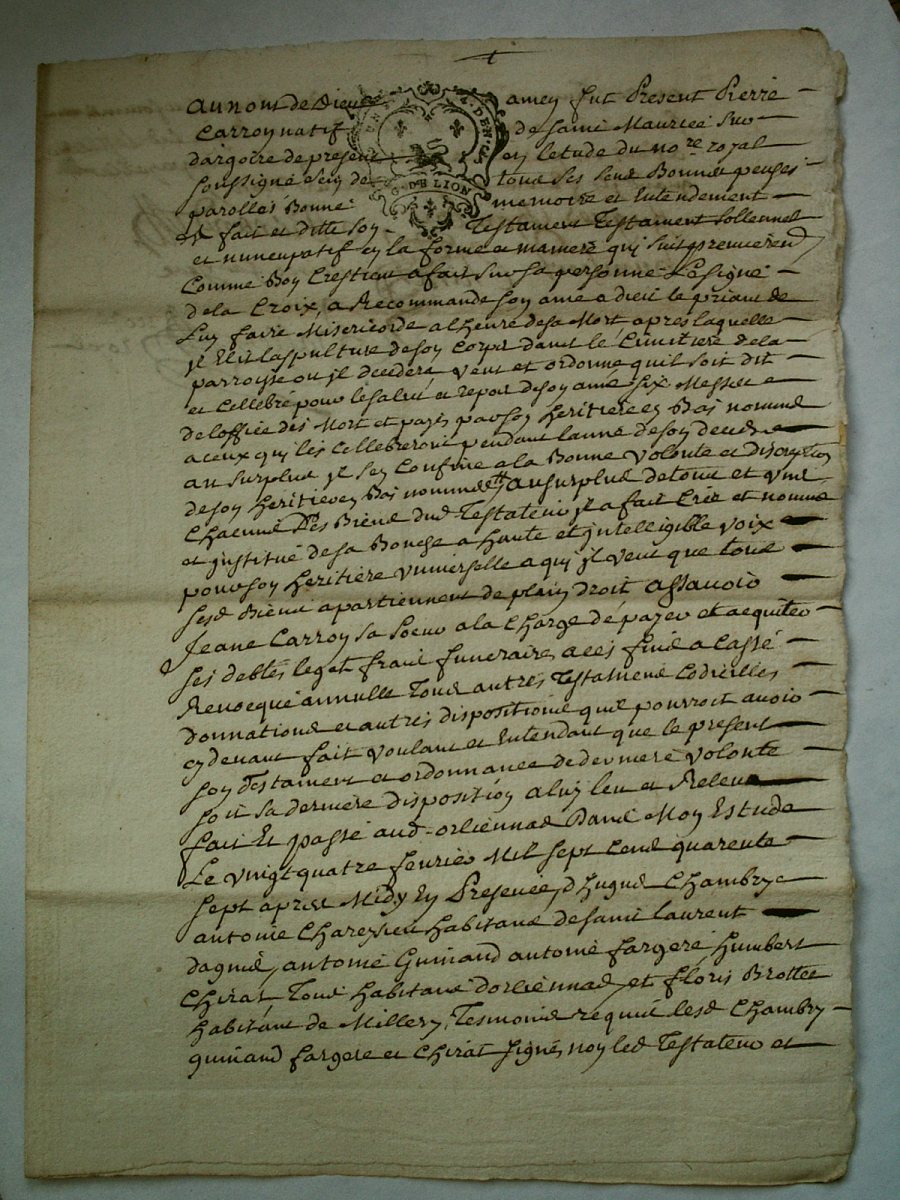 au nom de Dieu amen fut Present Pierre
Carroy natif de saint Maurice sur
dargoire de present en letude du no.re royal
soussigné sein de tous ses sens Bonnes pensés
parolles Bonne memoire et Entendement
DEN
G. DE LION
et fait et ditte son Testament Testament sollennel
et nuncupatif en la forme et maniere qui suit premieremt
Comme Bon Crestient a fait sur sa personne Le signe
de la Croix, a Recommandé son ame a dieu le priant de
Luy faire Misericorde a lheure de sa Mort apres laquelle
il Elit la spulture de son Corps dans le Cimitiere de la
parroisse ou il decedera veut et ordonne quil soit dit
et Cellebré pour le salut et repos de son ame six Messes
de loffice des Mort et payés par son heritiere en Bas nommé
a ceux qui les Cellebreront pendant lanné de son deces
au surplus il sen Confine a la Bonne volonte et discreption
de son heritiere en Bas nommée et au surplus de tous et uns
Chacuns les Biens dud Testateur il a fait Crée et nommé
et institué de sa Bouche a haute et intelligible voix
pour son heritière universelle a qui il veut que tous
sesd Biens apartiennent de plain droit assavoir
Jeane Carroy sa soeur a la Charge de payer et acquiter
ses debtes leget fraus funeraires a ces fins a Cassé
Revocqué annulle tous autres Testamens Codicilles
donnations et autres dispositions quil pourroit avoir
cy devant fait voulant et Entendant que le present
son Testament et ordonnance de derniere volonte
soit sa derniere disposition a luy leu et Releu
fait Et passé aud orliennas Dans Moy Estude
Le vingt quatre fevrier Mil sept Cens quarente
sept apres Midy En Presence d'hugue Chambry
antoine Chareysieu habitans de saint laurent
dagnie, antoine Guinand antoine fargere humbert
Chirat Tous habitans dorliennas et floris Brottet
habitant de Millery, Tesmoins requis lesd Chambry
guinand fargere et Chirat signé non led Testateur et